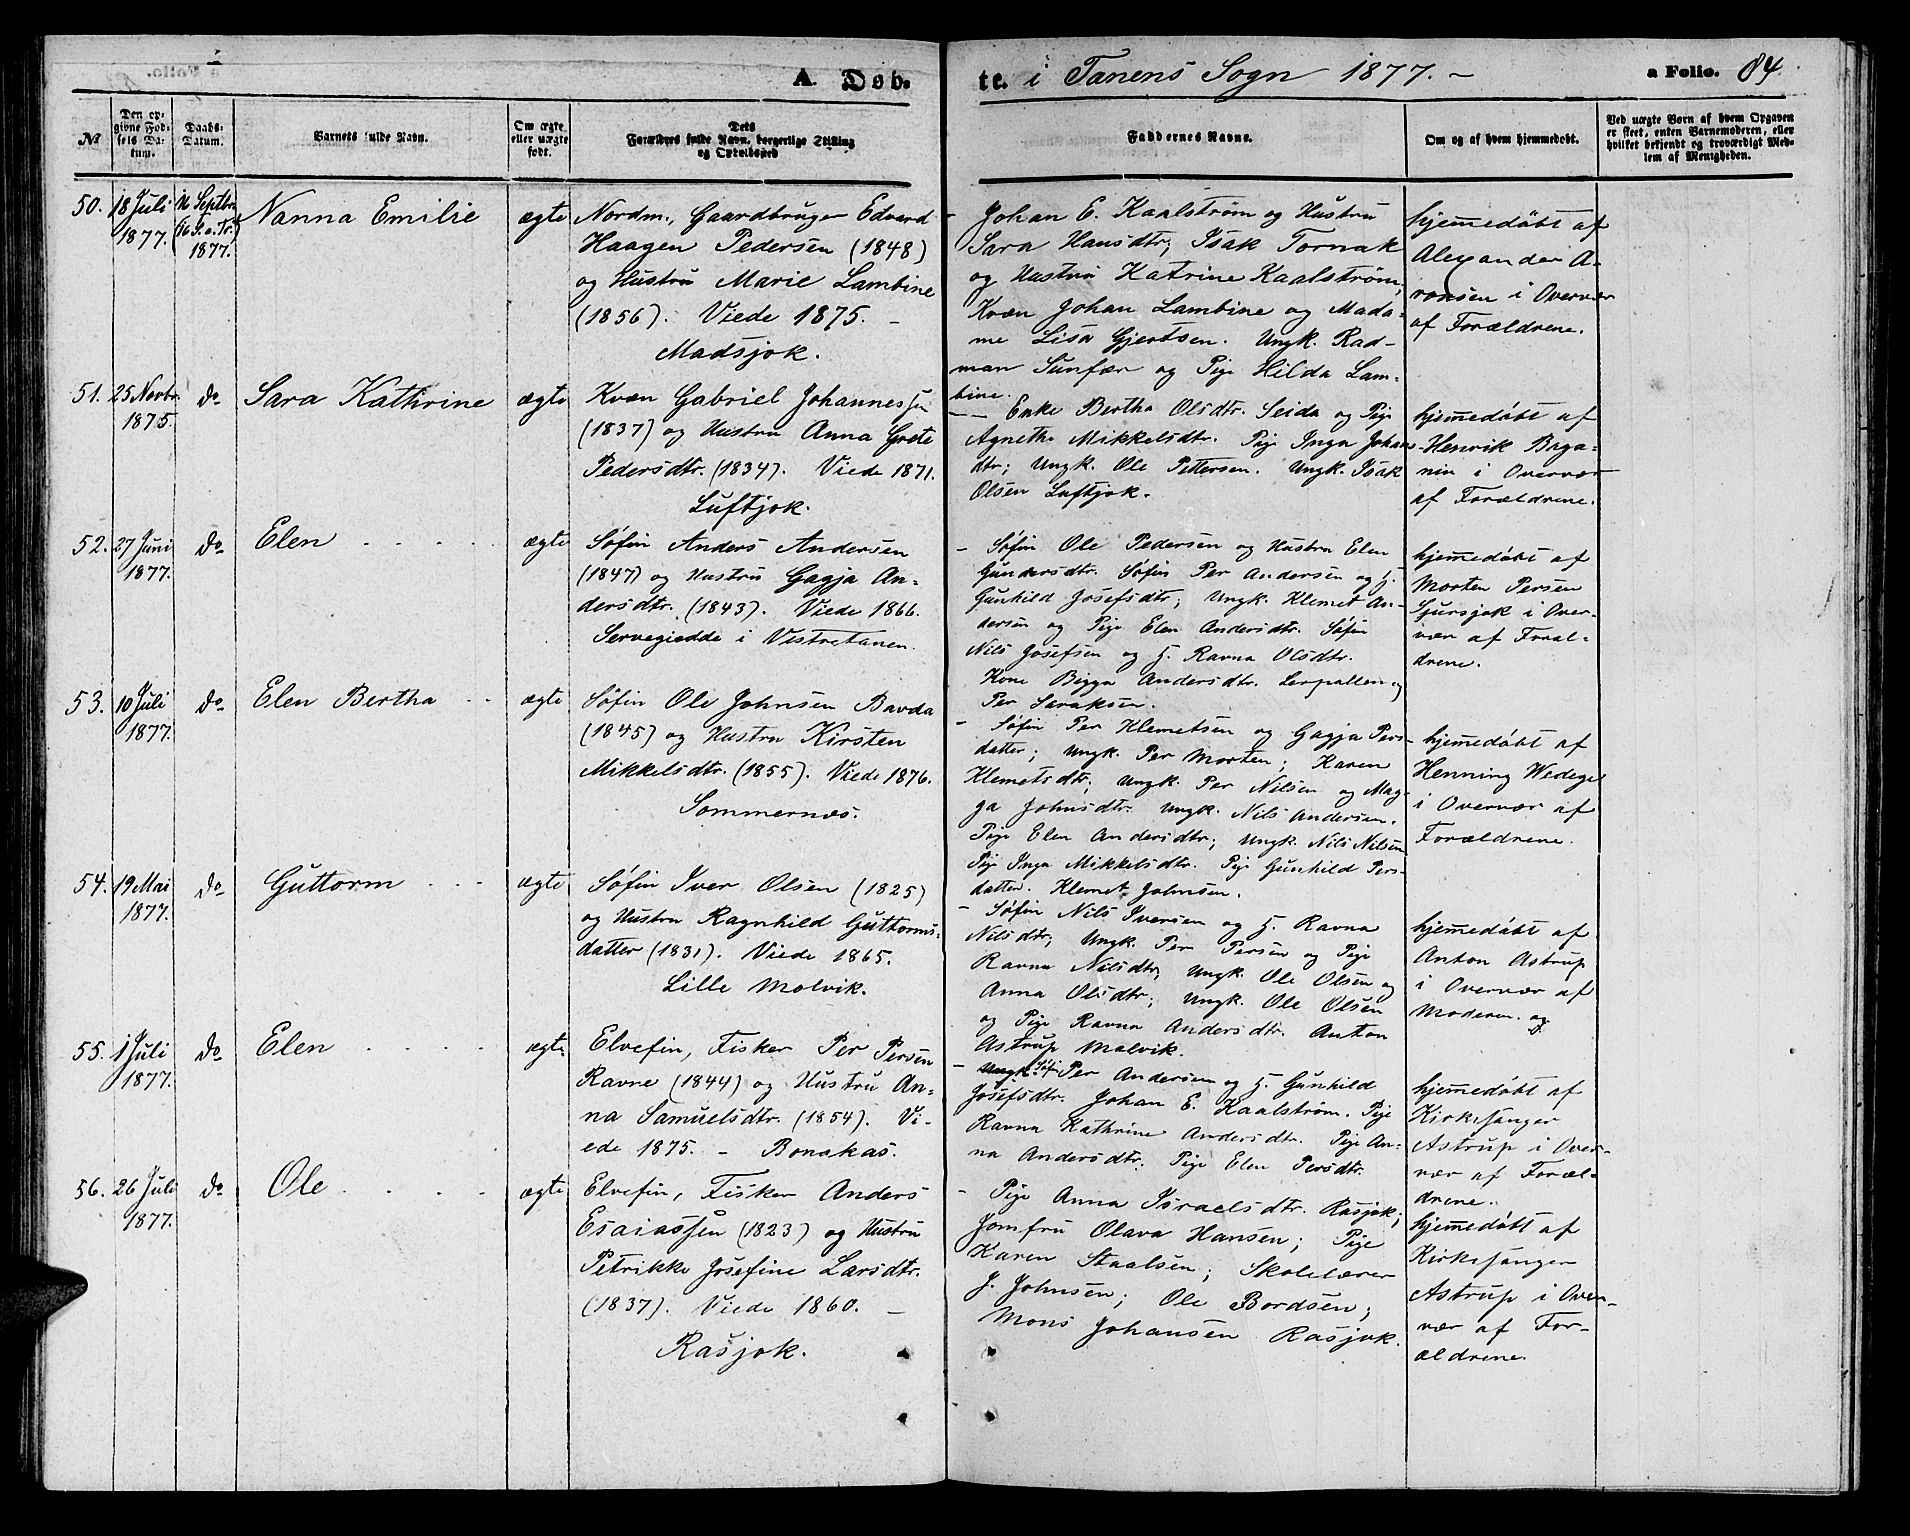 A. Døb-
te. i Tanens Sogn 1877. -
a Folio. 84.
№
Den op-
givne Fød-
sels Da-
tum.
Daabs-
Datum.
Barnets fulde Navn.
Om ægte
eller uægte
født.
Dets
Forældres fulde Navn, borgerlige Stilling
og Opholdssted
Faddernes Navne.
Om og af hvem hjemmedøbt.
Ved uægte Børn af hvem Opgaven
er skeet, enten Barnemoderen, eller
hvilket bekjendt og troværdigt Med-
lem af Menigheden.
50.
18 Juli
1877.
16 Septbr
(16 S. e. Tr.)
1877.
Nanna Emilie
ægte
Nordm., Gaardbruger Edvard
Haagen Pedersen (1848)
og Hustru Marie Lambine
(1856). Viede 1875. -
Madsjok.
- Johan E. Kaalstrøm og Hustru
Sara Hansdtr; Isak Tornak
og Hustru Katrine Kaalstrøm;
Kvæn Johan Lambine og Mada-
me Lisa Gjertsen. Ungk. Rad-
man Sunfær og Pige Hilda Lam-
bine.
hjemmedøbt af
Alexander A-
ronsen i Overvær
af Forældrene.
51.
25 Novbr.
1875.
do
Sara Kathrine
ægte
Kvæn Gabriel Johannessen
(1837) og Hustru Anna Grete
Pedersdtr. (1834). Viede 1871.
Luftjok.
- - Enke Bertha Olsdtr. Seida og Pige
Agnethe Mikkelsdtr. Pige Inga Johans-
dtr; Ungk. Ole Pettersen. Ungk. Isak
Olsen Luftjok.
hjemmedøbt af
Henrik Baga-
nin i Overvær
af Forældrene.
52.
27 Juni
1877.
do
Elen . . . . .
ægte
Søfin Anders Andersen
(1847) og Hustru Gagja An-
dersdtr. (1843). Viede 1866.
Servegiedde i Vestretanen.
- Søfin Ole Pedersen og Hustru Elen
Gundersdtr. Søfin Per Andersen og H.
Gunhild Josefsdtr; Ungk. Klemet An-
dersen og Pige Elen Andersdtr. Søfin
Nils Josefsen og H. Ravna Olsdtr.
Kone Bigga Andersdtr. Lerpallen og
Per Saraksen.
hjemmedøbt af
Morten Persen
Sjursjok i Over-
vær af Foræl-
drene.
53.
10 Juli
1877.
do
Elen Bertha . .
ægte
Søfin Ole Johnsen Bavda
(1845) og Hustru Kirsten
Mikkelsdtr. (1855). Viede 1876.
Sommernæs.
- Søfin Per Klemetsen og Gagja Pers-
datter; Ungk. Per Morten; Karen
Klemetsdtr; Ungk. Per Nilsen og Mag-
ga Johnsdtr. Ungk. Nils Andersen.
Pige Elen Andersdtr; Ungk. Nils Nilsen
Pige Inga Mikkelsdtr. Pige Gunhild Pers-
datter. Klemet Johnsen.
hjemmedøbt af
Henning Wedege
i Overvær af
Forældrene.
54.
19 Mai
1877.
do
Guttorm . . .
ægte
Søfin Iver Olsen (1825)
og Hustru Ragnhild Guttorms-
datter (1831). Viede 1865.
Lille Molvik.
- Søfin Nils Iversen og H. Ravna
Nilsdtr; Ungk. Per Persen og Pige
Ravna Nilsdtr; Ungk. Ole Olsen og
Anna Olsdtr; Ungk. Ole Olsen
og Pige Ravna Andersdtr. Anton
Astrup Molvik.
hjemmedøbt af
Anton Astrup
i Overvær af
Moderen. og
55.
1 Juli
1877.
do
Elen . . . .
ægte
Elvefin, Fisker Per Persen
Ravne (1844) og Hustru An-
na Samuelsdtr. (1854). Vi-
ede 1875. - Bonakas.
- Ungk. Søfi Per Andersen og H. Gunhild
Josefsdtr. Johan E. Kaalstrøm. Pige
Ravna Kathrine Andersdtr. Pige An-
na Andersdtr; Pige Elen Persdtr.
hjemmedøbt af
Kirkesanger
Astrup i Over-
vær af Foræl-
drene.
56.
26 Juli
1877.
do
Ole . . . .
ægte
Elvefin, Fisker Anders
Esaiassen (1823) og Hustru
Petrikke Josefine Larsdtr.
(1837). Viede 1860. -
Rasjok.
- Pige Anna Israelsdtr. Rasjok;
Jomfru Olava Hansen; Pige
Karen Staalsen; Skolelærer
J. Johnsen; Ole Bordsen;
Mons Johansen Rasjok.
hjemmedøbt af
Kirkesanger
Astrup i Over-
vær af For-
ældrene.